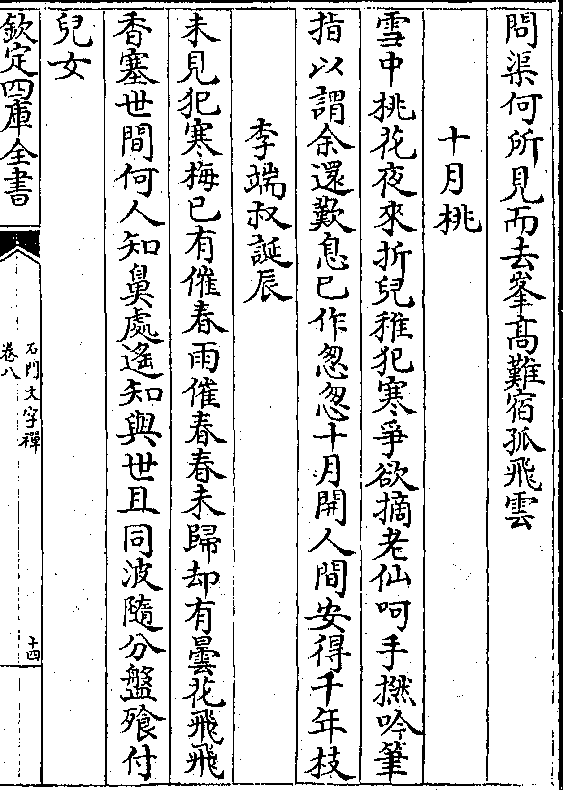 問渠何所見而去峯高難宿孤飛雲
十月桃
雪中桃花夜來折兒稚犯寒爭欲摘老仙呵手撚吟筆
指以謂余還歎息已作忽忽十月開人間安得千年枝
李端叔誕辰
未見犯寒梅已有催春雨催春春未歸却有曇花飛飛
香塞世間何人知鼻處遙知與世且同波隨分盤飱付
兒女
欽定四庫全書
石門文字禪
卷八
十四